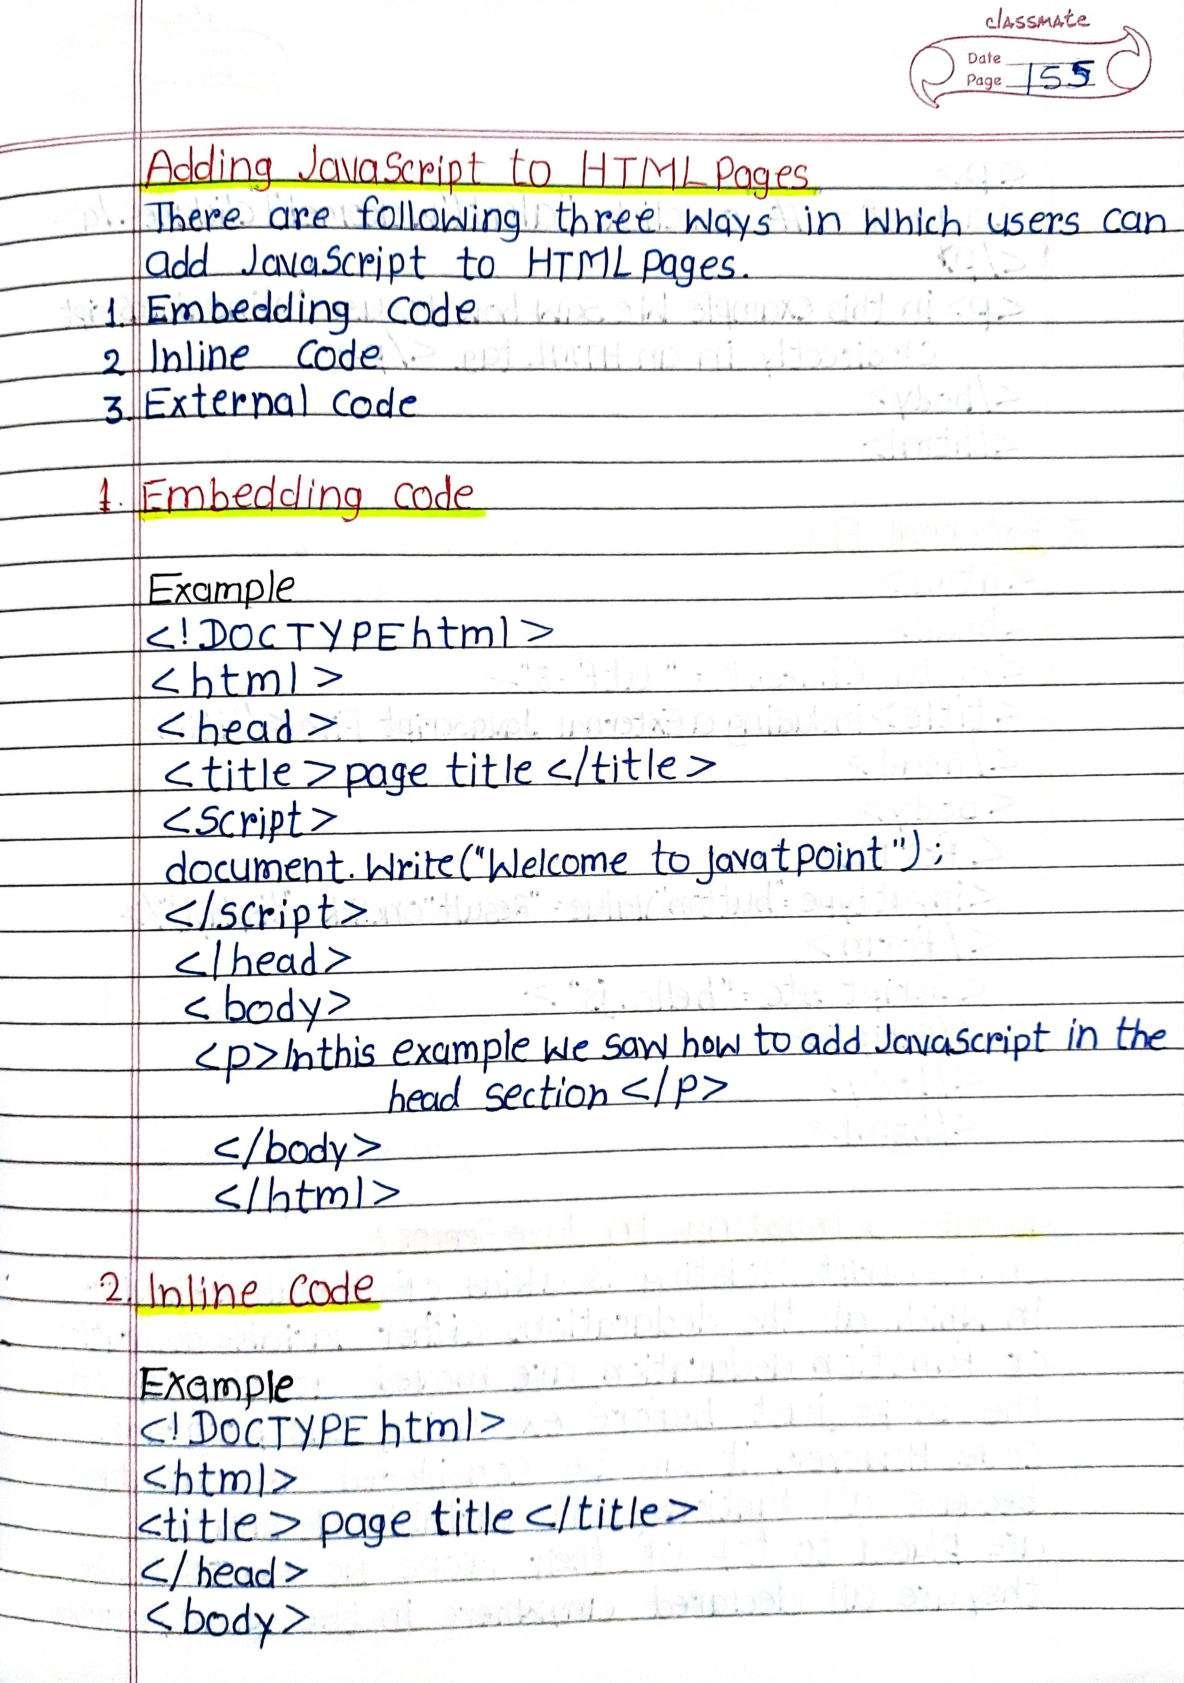 classmate
Date
Page 155
Adding JavaScript to HTML Pages
There are following three ways in which users can
add JavaScript to HTML pages.
1. Embedding code
2 Inline code
3. External code
1. Embedding code
Example
<!DOCTYPE html>
<html>
<head>
<title>page title </title>
<script>
document.write("Welcome to javatpoint");
</script>
</head>
<body>
<p>In this example we saw how to add JavaScript in the
head section </p>
</body>
</html>
2. Inline code
Example
<!DOCTYPE html>
<html>
<title> page title </title>
</head>
<body>